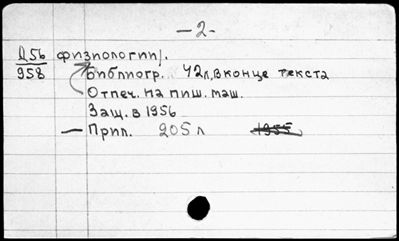 — 2 —
Д56 физиологии/.
958 Библиогр. 42л, в конце текста
Отпеч. на пиш. маш.
Защ. в 1956
— Прил. 205 л 1955